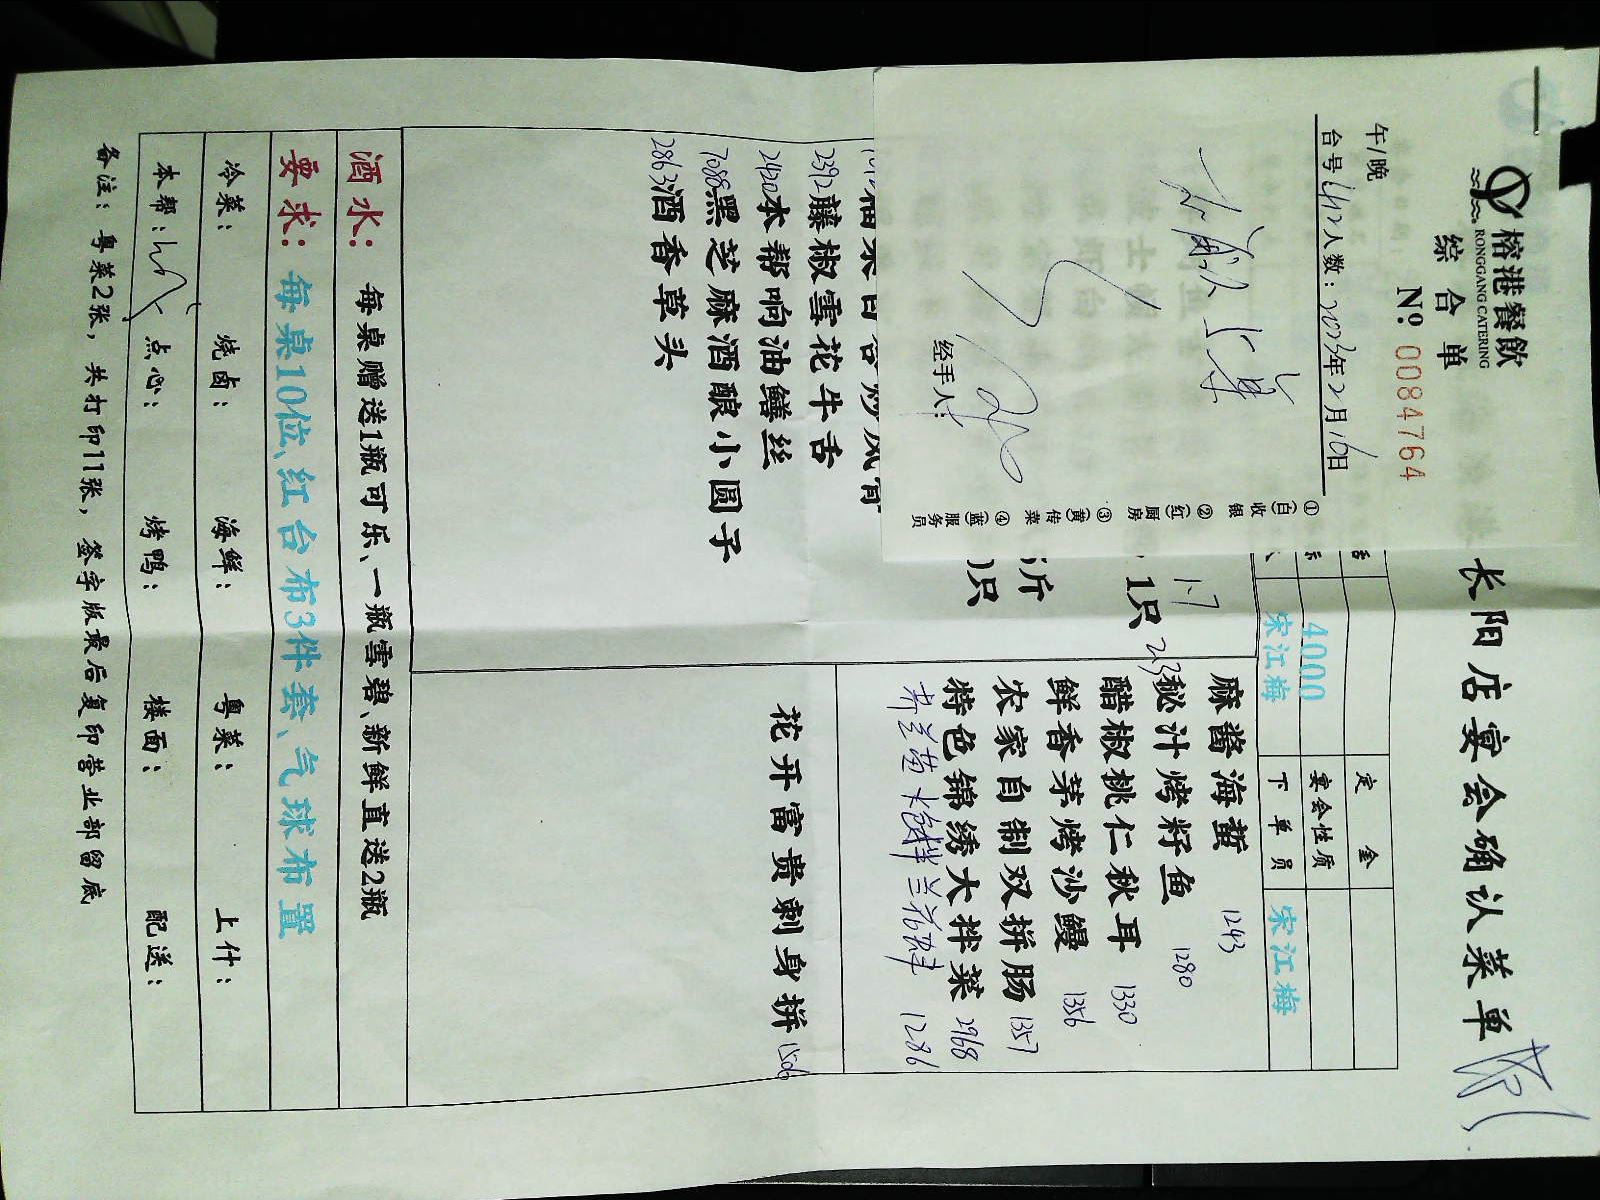 榕港餐飲
RONGGANG CATERING
综合单
№ 0084764
午/晚
台号 人数： 2023年2月16日
经手人：
①(白)收银 ②(红)厨房 ③(黄)传菜 ④(蓝)服务员
长阳店宴会确认菜单
定金
4000 宴会性质
宋江梅 下单员 宋江梅
1只
斤
只
2392藤椒雪花牛舌
2420本帮响油鳝丝
7088黑芝麻酒酿小圆子
2863酒香草头
麻酱海蜇 1243
秘汁烤籽鱼 1280
醋椒桃仁秋耳 1330
鲜香菜烤沙鳗 1356
农家自制双拼肠 1357
特色锦绣大拌菜 2968
1286
花开富贵刺身拼
酒水：每桌赠送1瓶可乐、一瓶雪碧、新鲜直送2瓶
要求：每桌10位、红台布3件套、气球布置
冷菜： 烧卤： 海鲜： 粤菜： 上什：
本帮： 点心： 烤鸭： 楼面： 配送：
备注：粤菜2张，共打印11张，签字版最后复印营业部留底